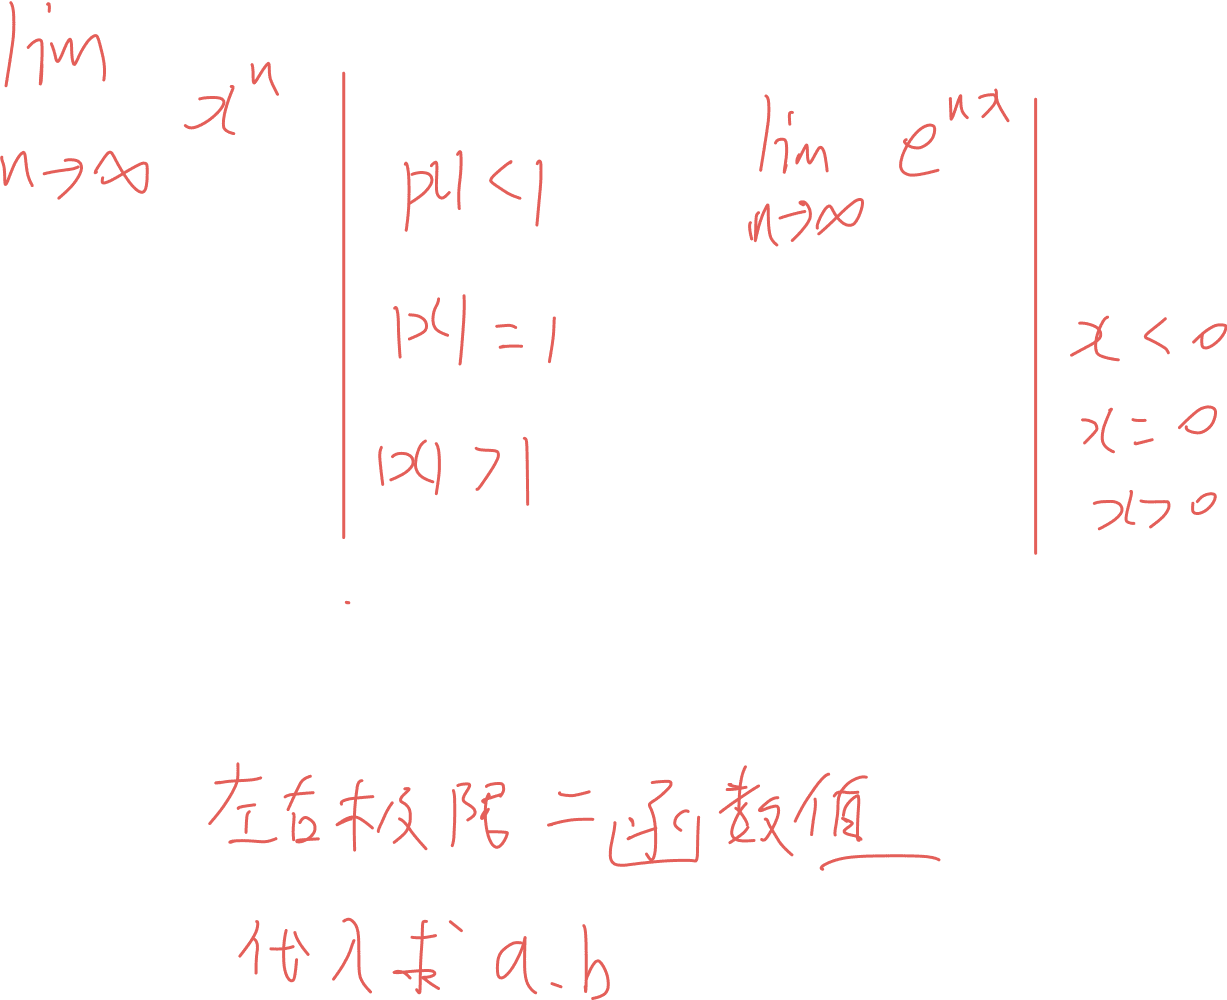 lim x^n
n→∞
|x| < 1
|x| = 1
|x| > 1
lim e^{nx}
n→∞
x < 0
x = 0
x > 0
左右极限=函数值
代入求 a.b